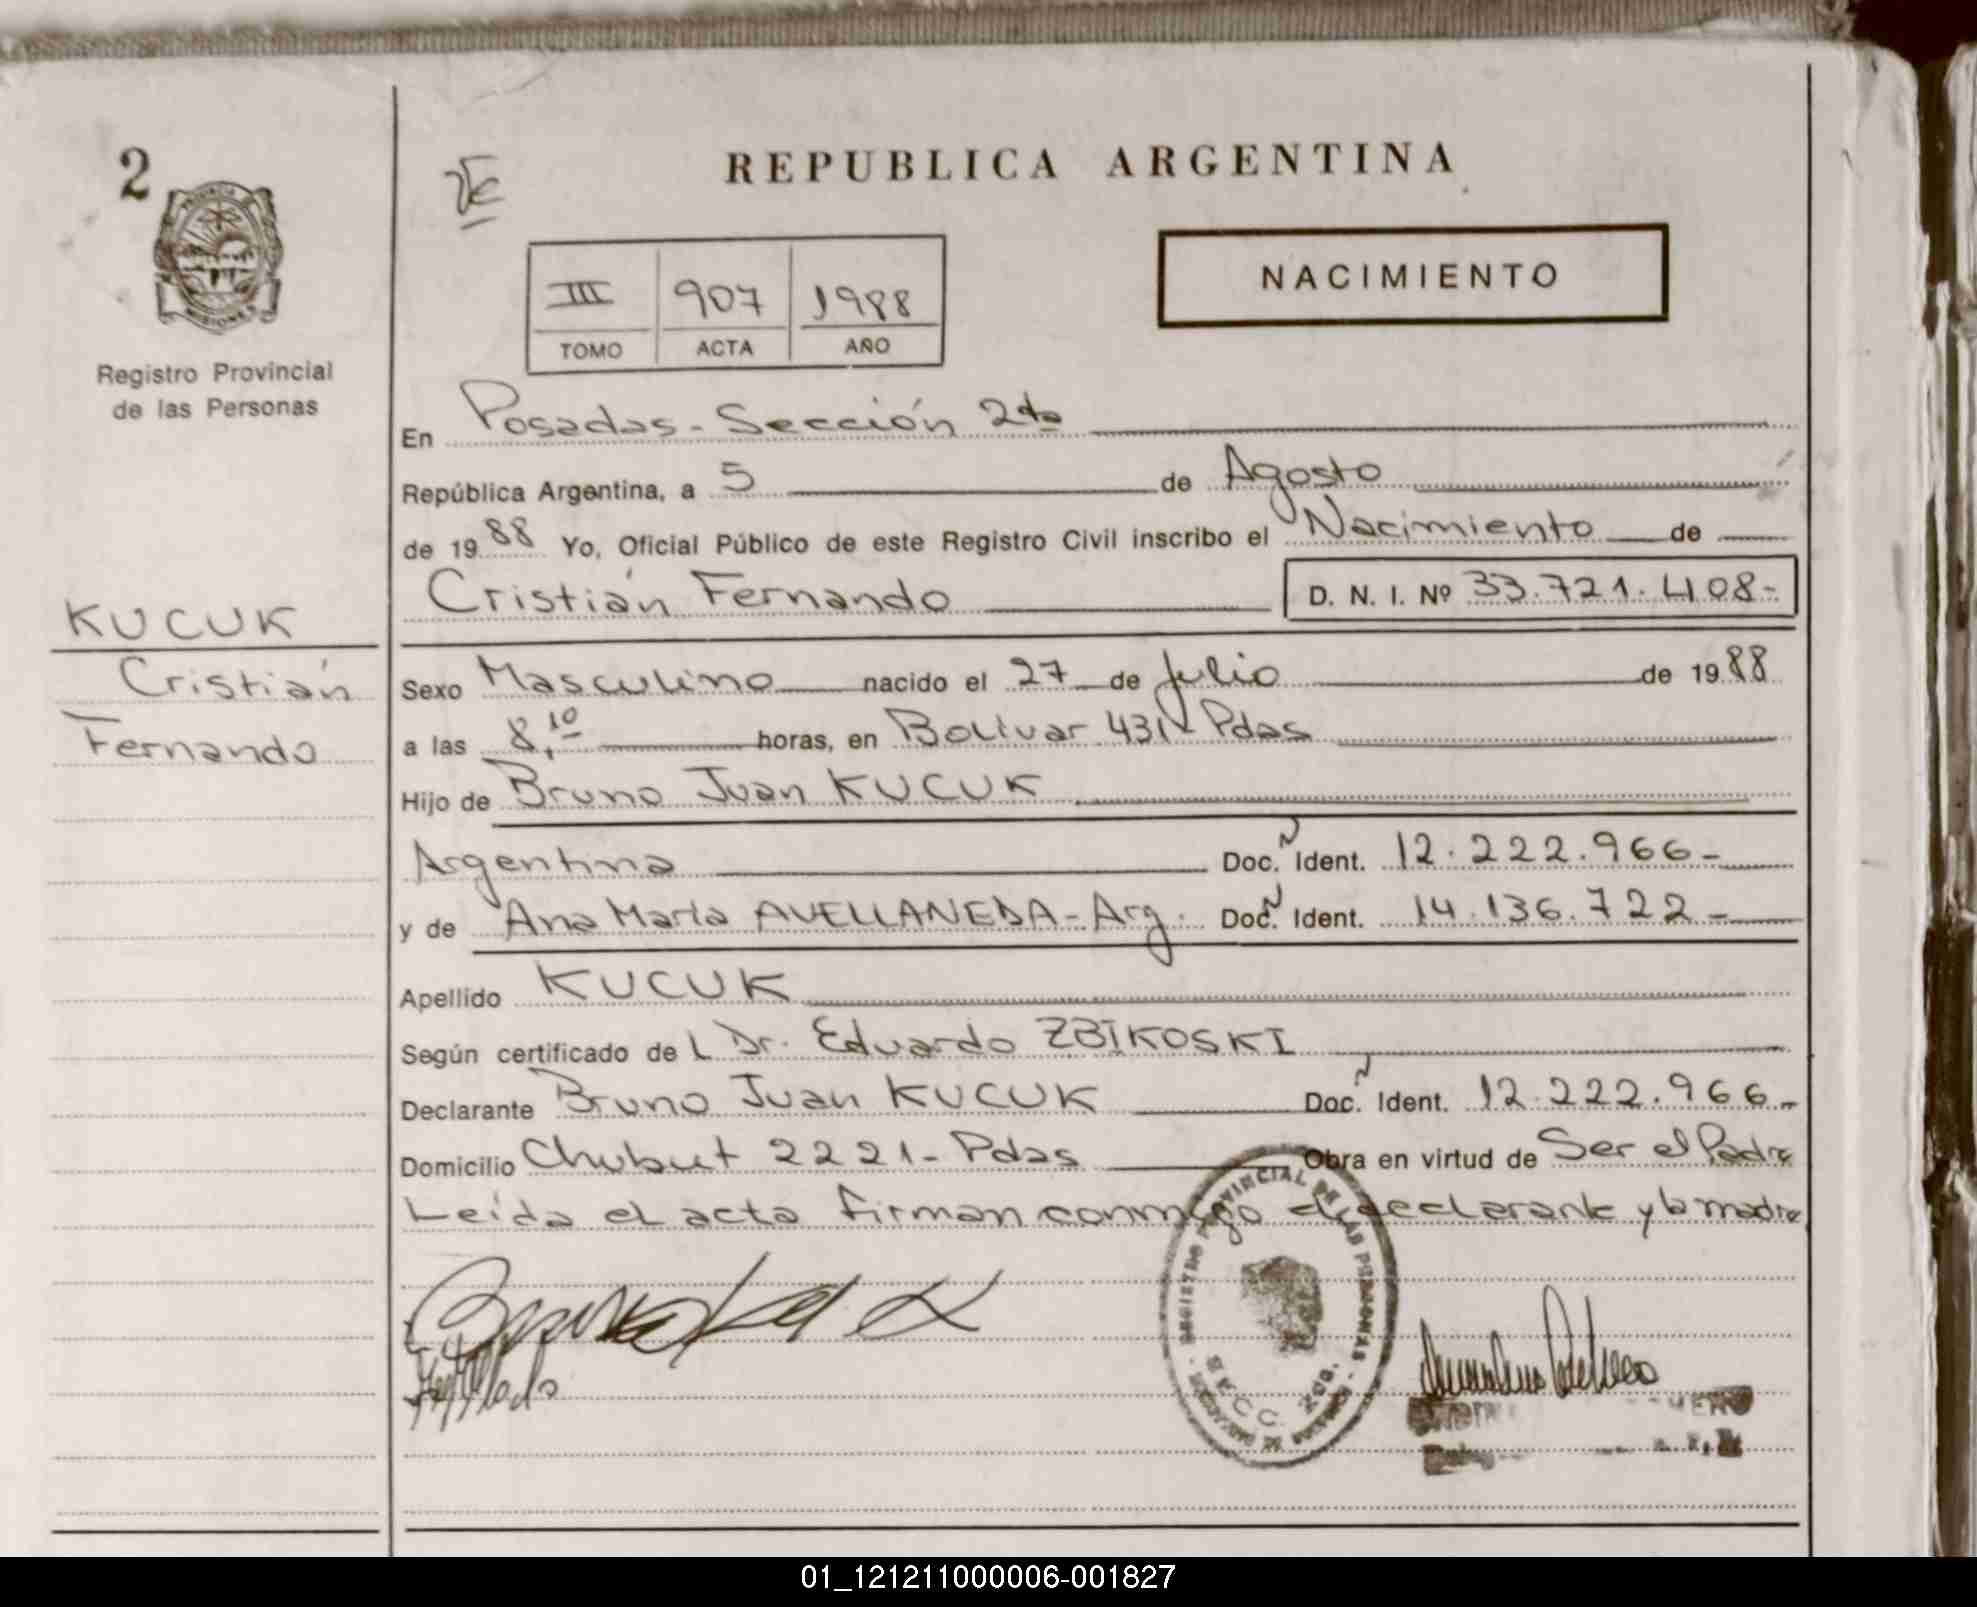 2
REPUBLICA ARGENTINA
PROVINCIA
MISIONES
III 907 1988
TOMO ACTA AÑO
NACIMIENTO
Registro Provincial
de las Personas
En Posadas - Sección 2da
República Argentina, a 5 de Agosto
de 1988 Yo, Oficial Público de este Registro Civil inscribo el Nacimiento de
Cristián Fernando D. N. I. Nº 33.721.408-
KUCUK
Cristián
Fernando
Sexo Masculino nacido el 27 de Julio de 1988
a las 8,10 horas, en Bolivar 431 - Pdas
Hijo de Bruno Juan KUCUK
Argentina Doc. Ident. 12.222.966-
y de Ana María AVELLANEDA - Arg. Doc. Ident. 14.136.722-
Apellido KUCUK
Según certificado del Dr. Eduardo ZBIKOSKI
Declarante Bruno Juan KUCUK Doc. Ident. 12.222.966-
Domicilio Chubut 2221 - Pdas Obra en virtud de Ser el Padre
Leida el acta firman conmigo el declarante y la madre
REGISTRO PROVINCIAL DE LAS PERSONAS
SECC. 2da.
01_121211000006-001827